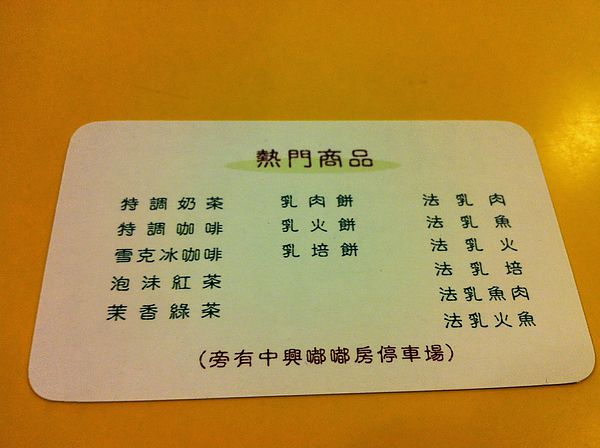 熱門商品
特調奶茶
特調咖啡
雪克冰咖啡
泡沫紅茶
茉香綠茶
乳肉餅
乳火餅
乳培餅
法乳肉
法乳魚
法乳火
法乳培
法乳魚肉
法乳火魚
(旁有中興嘟嘟房停車場)